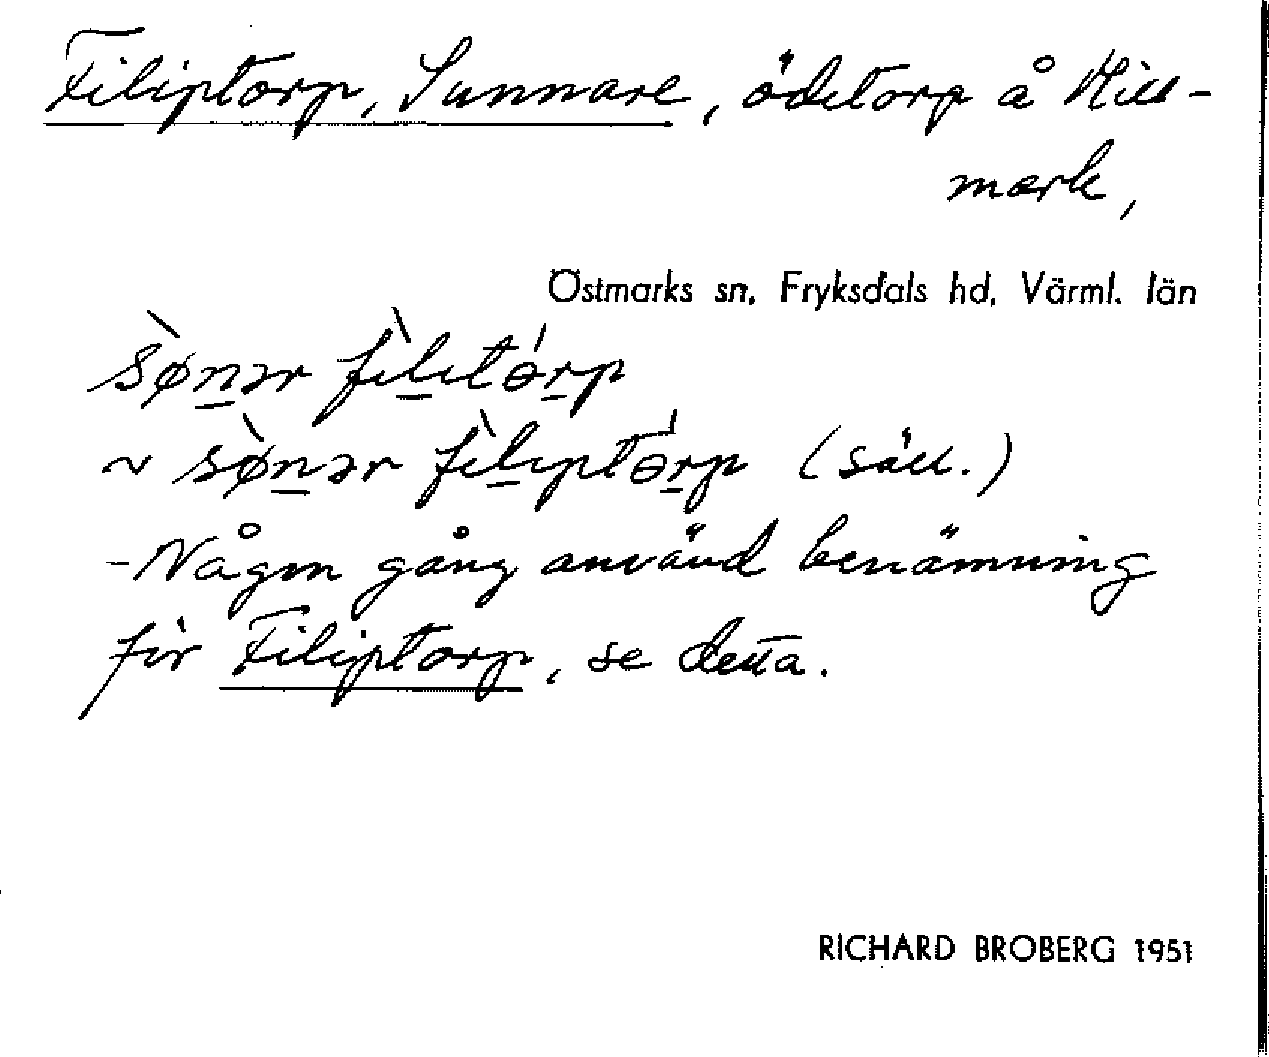 Filiptorp, Sunnare, ödetorp å Hill-
mark,
Östmarks sn, Fryksdals hd, Värml. län
sø̀nər fìlitórp
~ sø̀nər fìliptórp (säll.)
- Någon gång använd benämning
för Filiptorp, se detta.
RICHARD BROBERG 1951